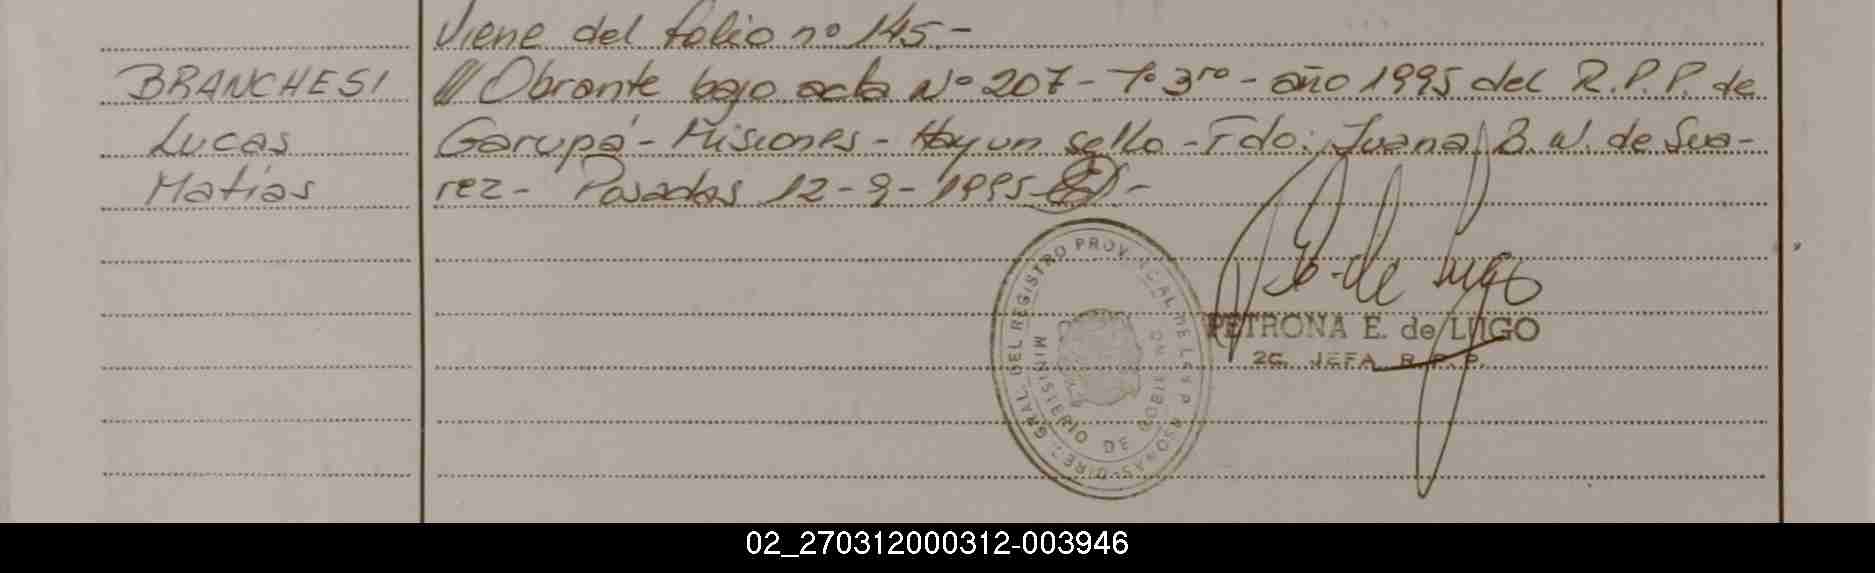 Viene del folio nº 145.-
BRANCHESI
Lucas
Matías
/// Obrante bajo acta Nº 207 - Tº 3ro - año 1995 del R.P.P. de
Garupá - Misiones - Hay un sello - Fdo: Juana B. W. de Sua-
rez - Posadas 12 - 9 - 1995 -
E. de Lugo
PETRONA E. de LUGO
2a. JEFA R.P.P.
DIREC. GRAL. DEL REGISTRO PROVINCIAL DE LAS PERSONAS
MINISTERIO DE GOBIERNO
02_270312000312-003946